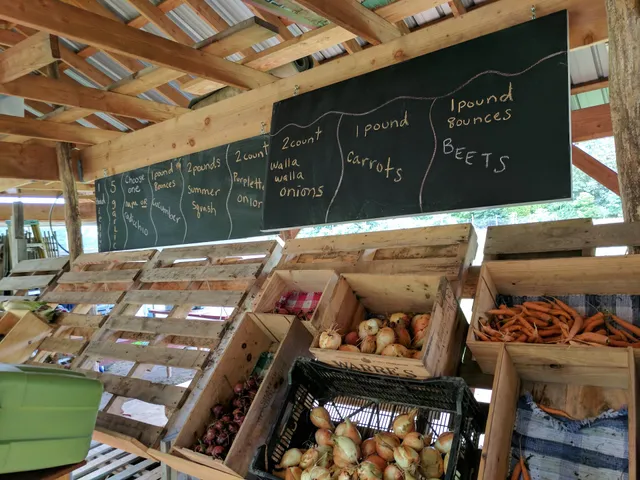 Choose
one
1 pound
8ounces
Cucumber
2 pounds
summer
Squash
2 count
onion
2 count
walla
walla
onions
1 pound
carrots
1 pound
8ounces
BEETS